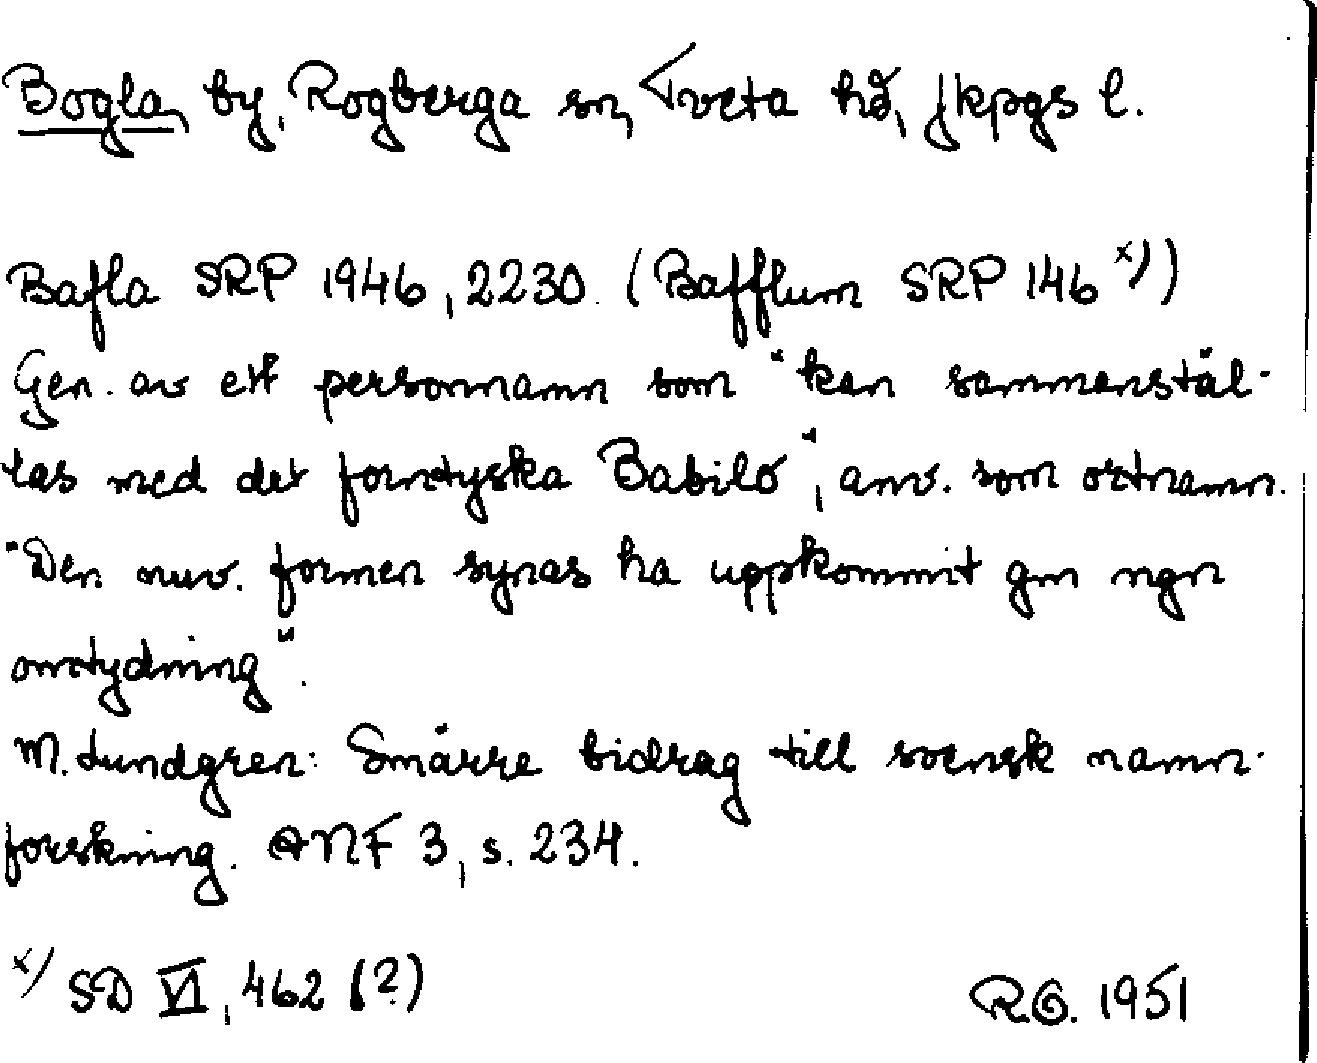 Bogla, by, Rogberga sn, Tveta hd, Jkpgs l.
Bafla SRP 1946, 2230. (Bafflum SRP 146 x))
Gen. av ett personnamn som "kan sammenstäl-
las med det forntyska Babilo", anv. som ortnamn.
"Den nuv. formen synas ha uppkommit gm ngn
omtydning".
M. Lundgren: Smärre bidrag till svensk namn-
forskning. ANF 3, s. 234.
x) SD VI, 462 (?)
R.G. 1951